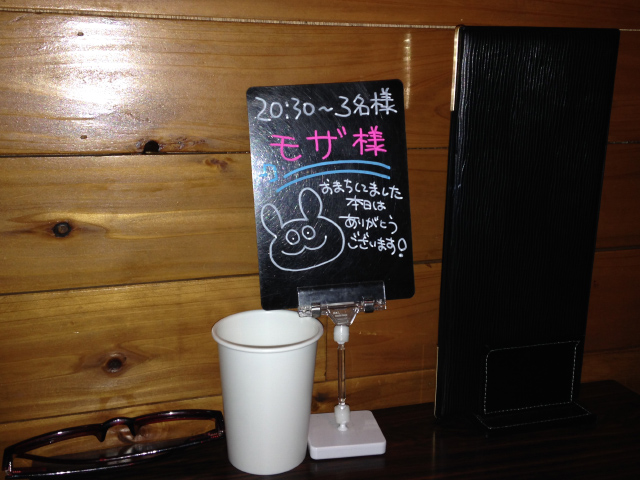 20:30〜3名様
モザ様
おまちしてました
本日は
ありがとう
ございます!